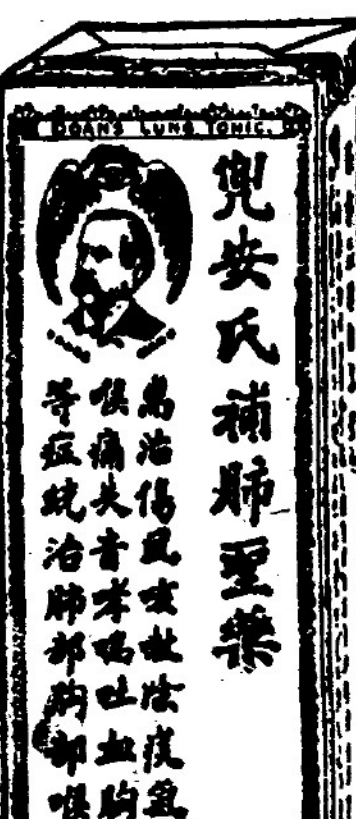 DOAN'S LUNG TONIC.
兜安氏補肺聖藥
治傷風咳嗽痰氣
喉痛失音哮喘吐血胸
等症統治肺部胸部喉